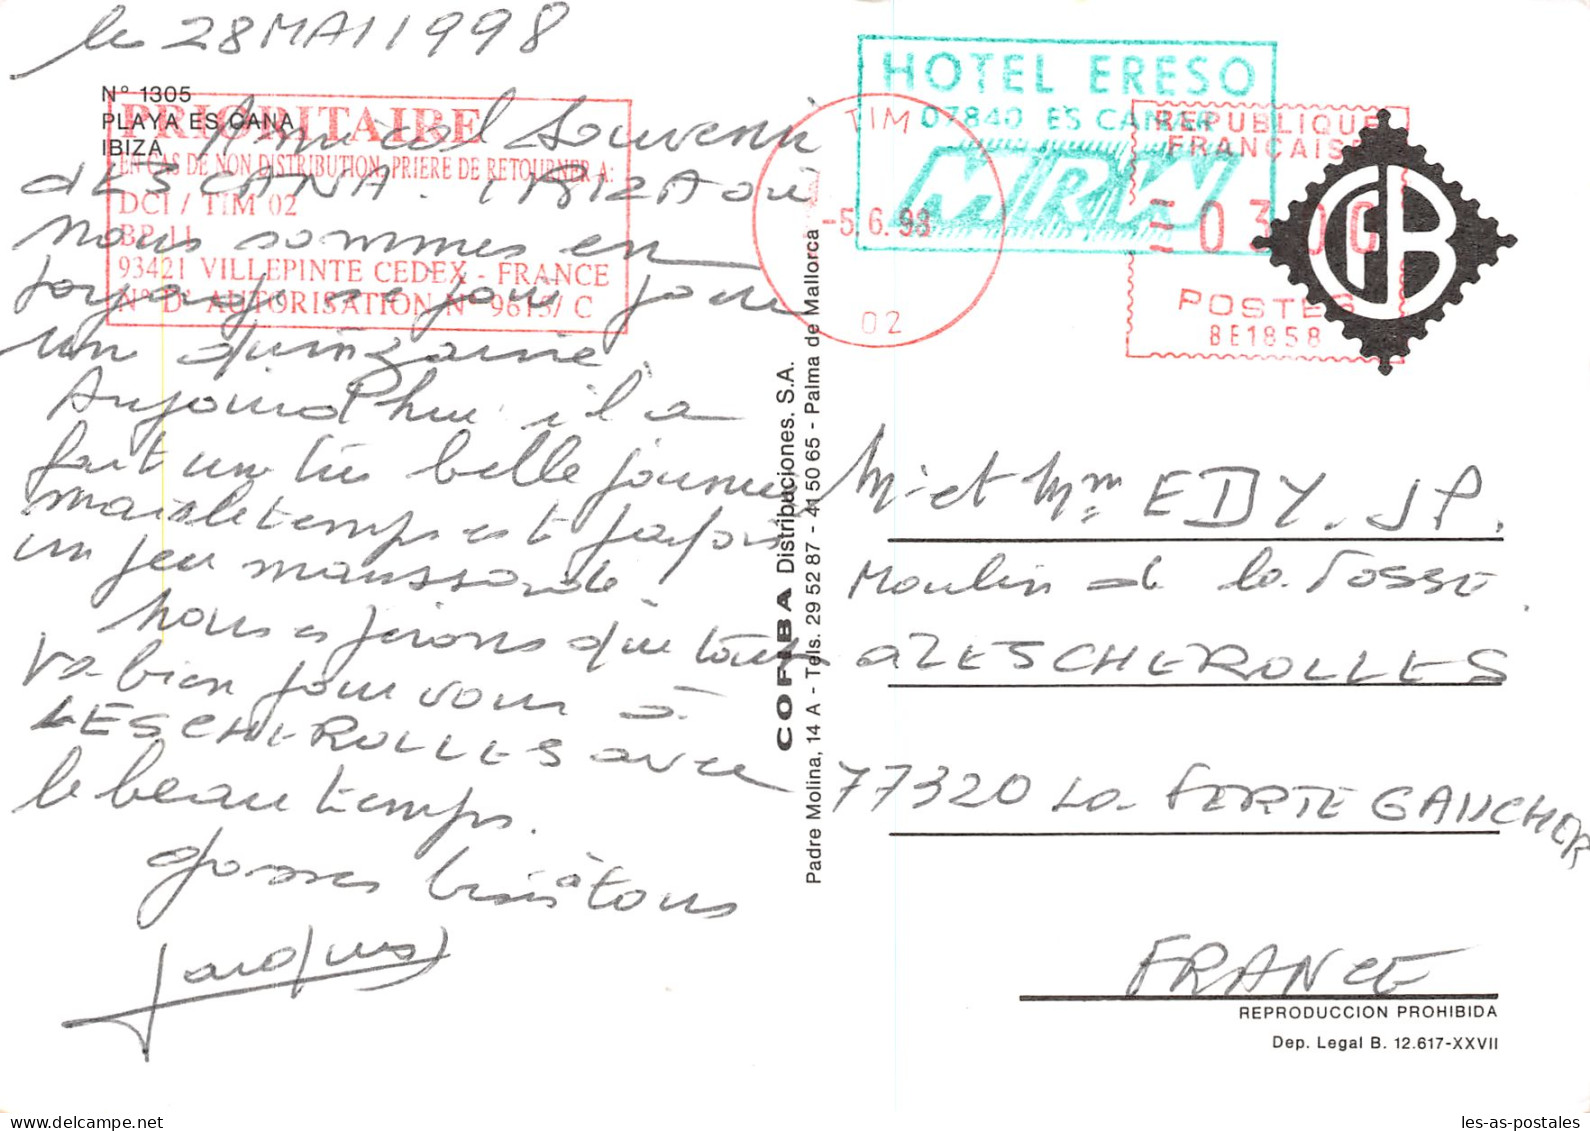 le 28 MAI 1998
N° 1305
PLAYA ES CANA
IBIZA
PRIORITAIRE
EN CAS DE NON DISTRIBUTION, PRIERE DE RETOURNER A:
DCI / TIM 02
BP 11
93421 VILLEPINTE CEDEX - FRANCE
N° D' AUTORISATION N° 9615/ C
Amical Souvenir
d'ES CANA. IBIZA où
nous sommes en
voyage pour
un quinzaine.
Aujourd'hui il a
fait une très belle journée
mais le temps est parfois
un peu maussade.
Nous espérons que tout
va bien pour vous à
LESCHEROLLES avec
le beau temps.
Grosses bises à tous
Jacques
COFIBA Distribuciones. S.A.
Padre Molina, 14 A - Tels. 29 52 87 - 41 50 65 - Palma de Mallorca
HOTEL ERESO
07840 ES CANAR
MRW
TIM
-5.6.98
02
REPUBLIQUE
FRANCAISE
0300
POSTES
BE1858
CB
Mr et Mme EDY. J P.
Moulin de la Fosse.
à LESCHEROLLES
77320 La FERTE GAUCHER
FRANCE
REPRODUCCION PROHIBIDA
Dep. Legal B. 12.617-XXVII
les-as-postales